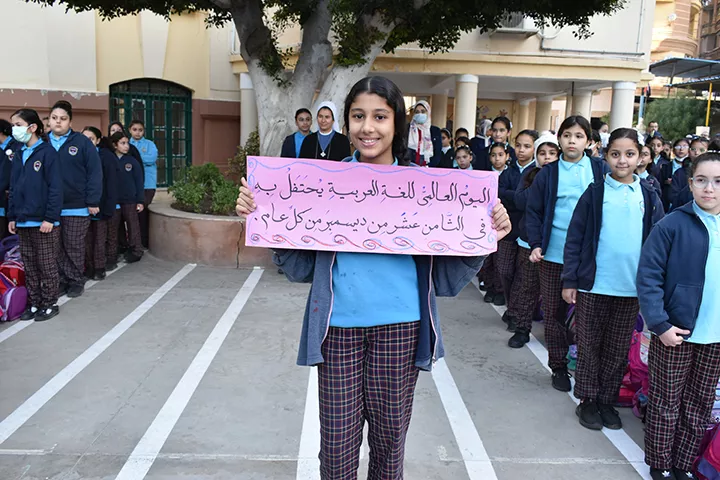 اليومُ العالمىُّ للغةِ العربيةِ يُحتفَلُ بِهِ
فى الثَّامنِ عَشَرَ مِن ديسمبرَ من كلِّ عامٍ .